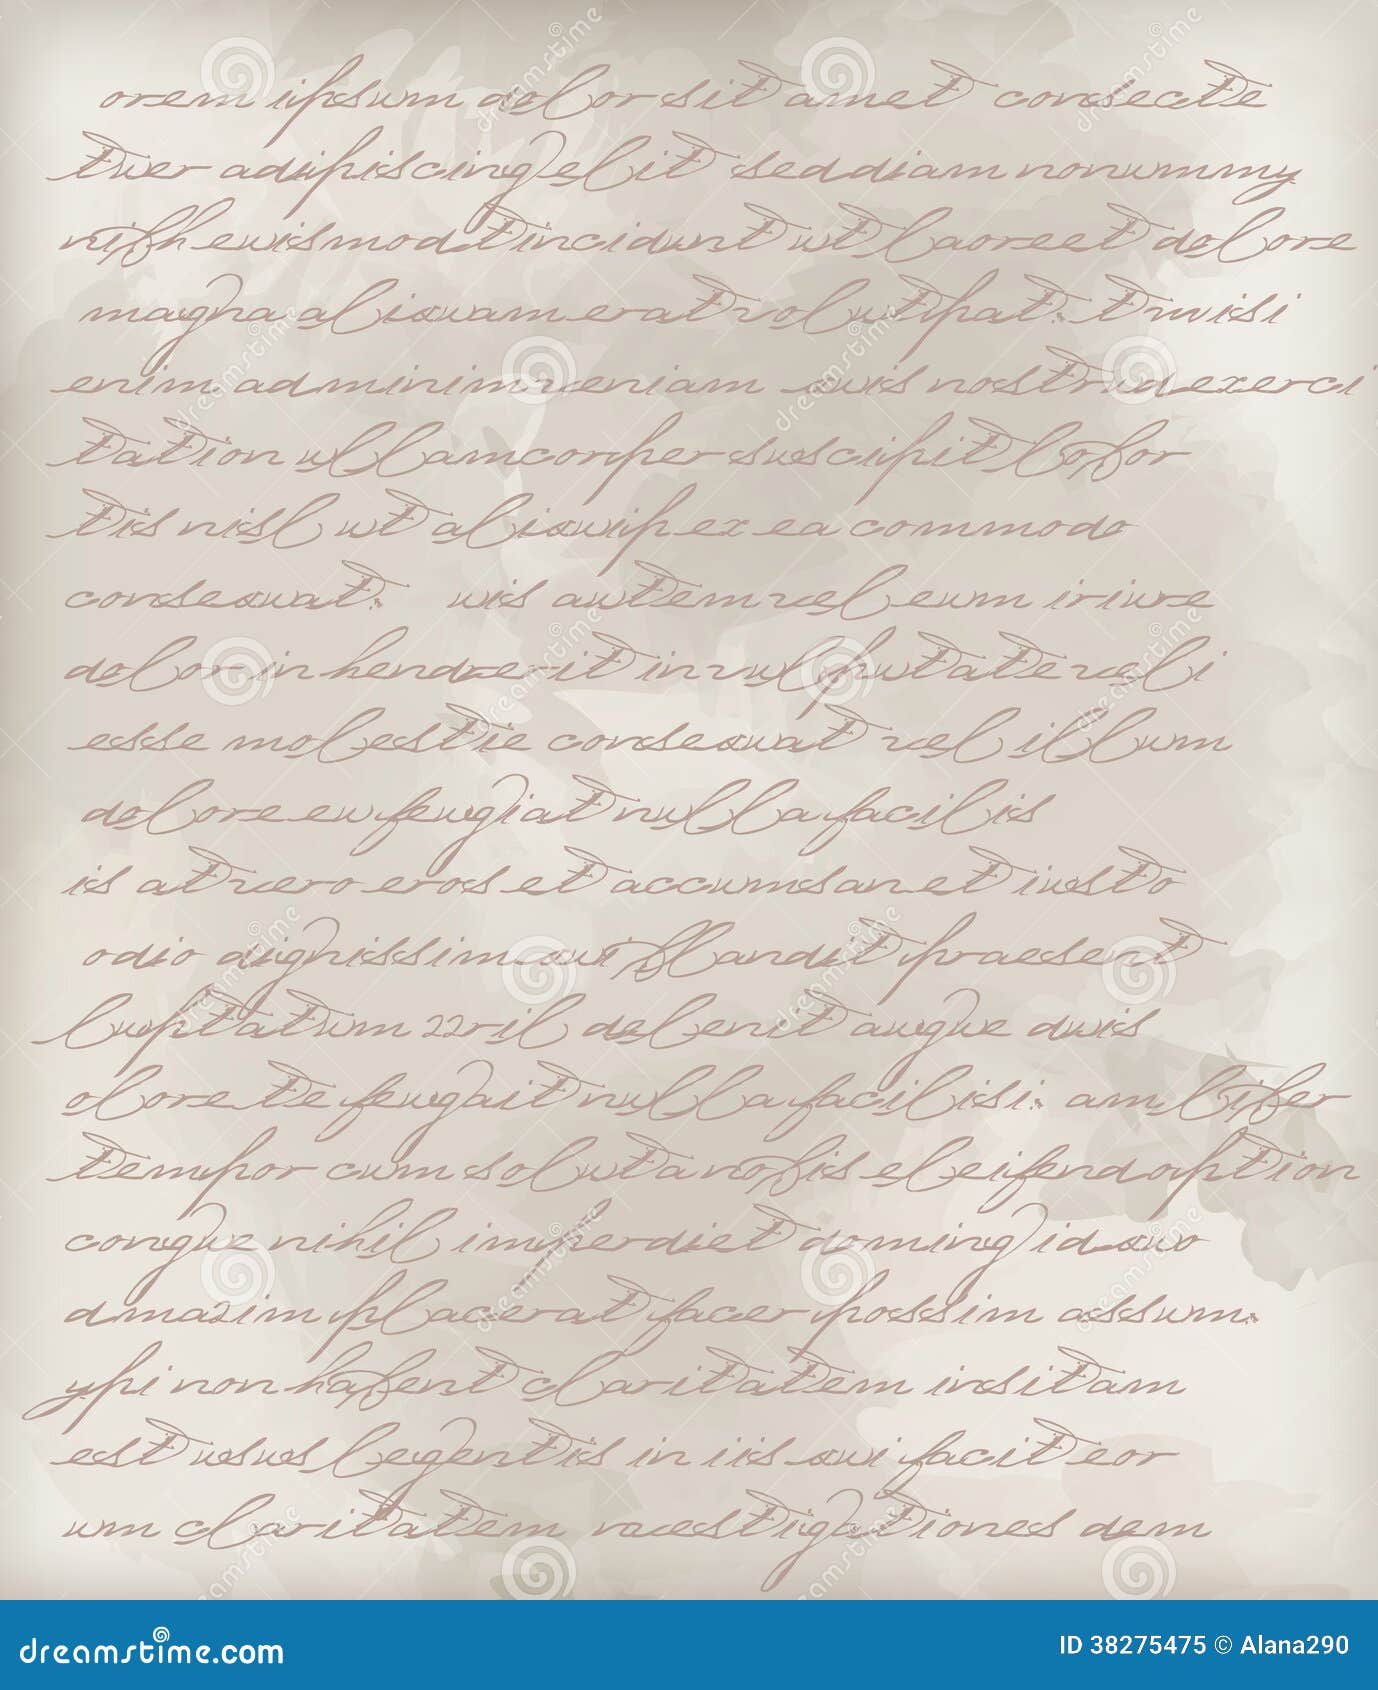 orem ipsum dolor sit amet consecte
tuer adipiscing elit sed diam nonummy
nibh euismod tincidunt ut laoreet dolore
magna aliquam erat volutpat. t wisi
enim ad minim veniam quis nostrud exerci
tation ullamcorper suscipit lobor
tis nisl ut aliquip ex ea commodo
consequat. uis autem vel eum iriure
dolor in hendrerit in vulputate veli
esse molestie consequat vel illum
dolore eu feugiat nulla facilis
is at vero eros et accumsan et iusto
odio dignissim qui blandit praesent
luptatum zzril delenit augue duis
olore te feugait nulla facilisi. am liber
tempor cum soluta nobis eleifend option
congue nihil imperdiet doming id quo
d mazim placerat facer possim assum.
ypi non habent claritatem insitam
est usus legentis in iis qui facit eor
um claritatem nvestigationes dem
dreamstime.com ID 38275475 © Alana290